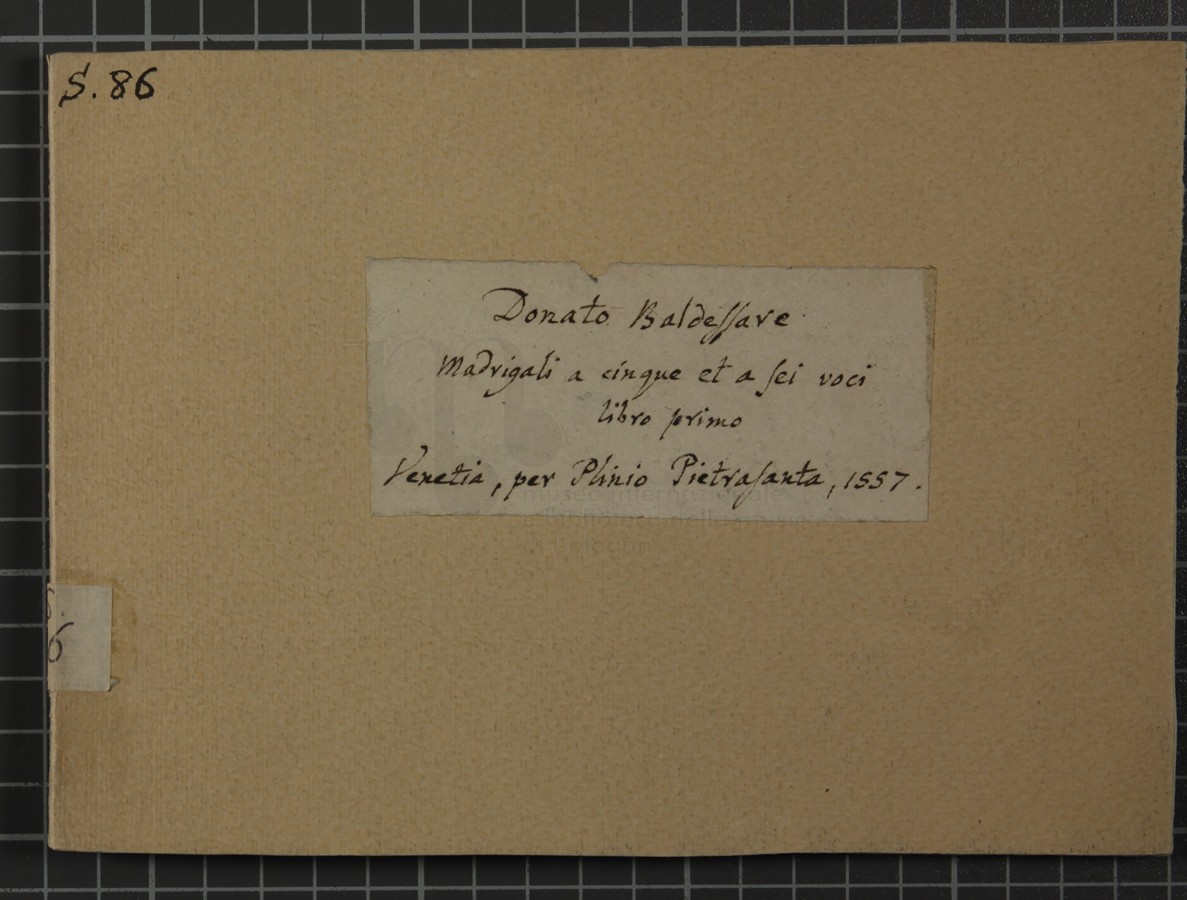 S. 86
Donato Baldessare
Madrigali a cinque et a sei voci
libro primo
Venetia, per Plinio Pietrasanta, 1557.
museo internazionale
e biblioteca della musica
di bologna
6